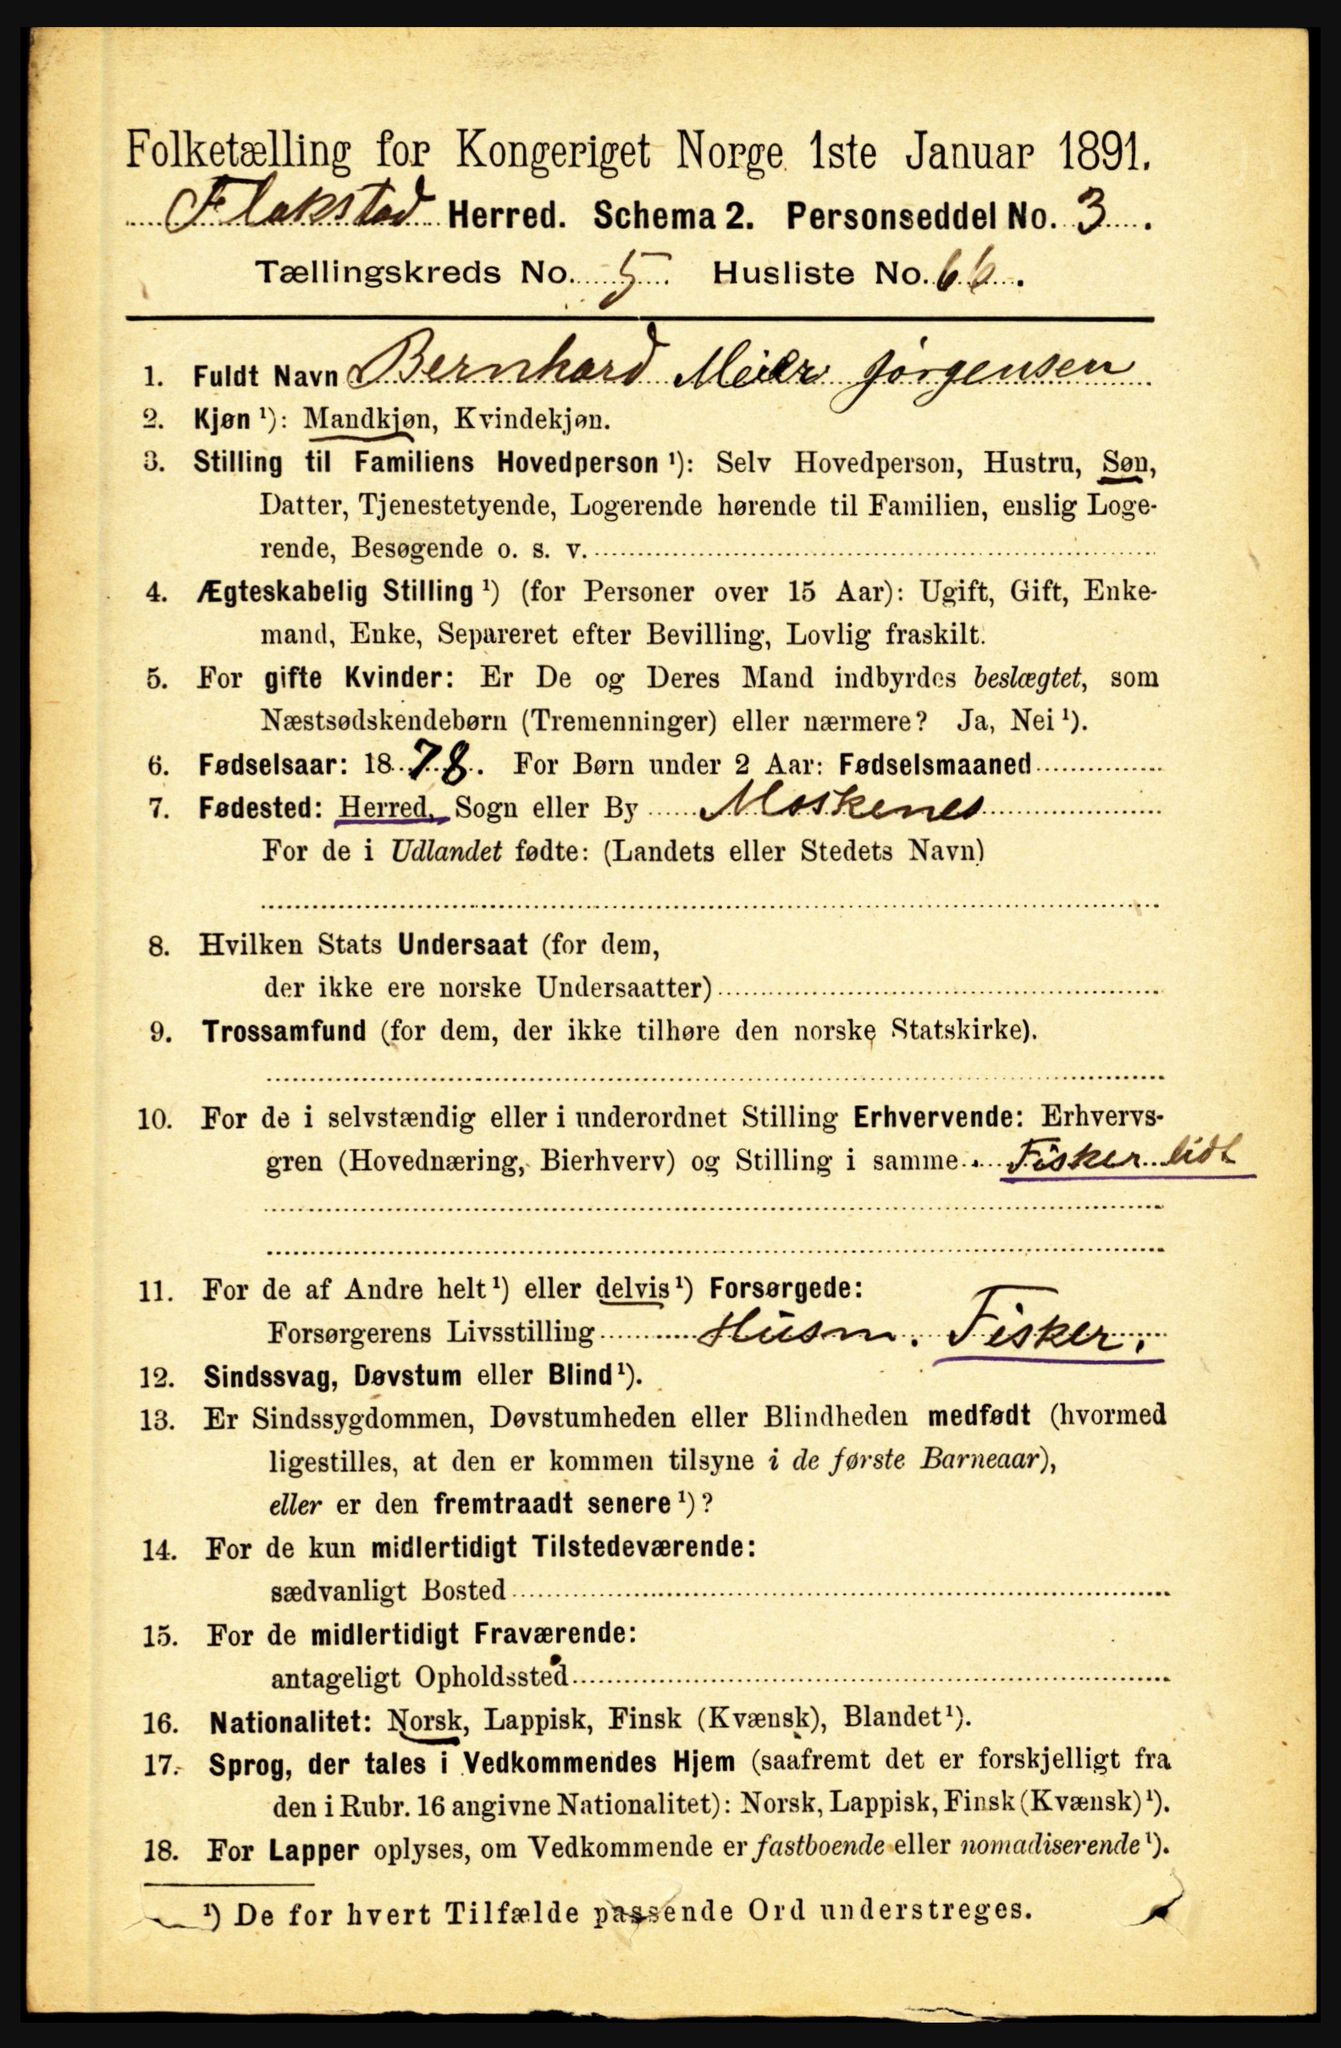 Folketælling for Kongeriget Norge 1ste Januar 1891.
Flakstad Herred. Schema 2. Personseddel No. 3.
Tællingskreds No. 5. Husliste No. 66.
1. Fuldt Navn Bernhard Meier Jørgensen
2. Kjøn ¹): Mandkjøn, Kvindekjøn.
3. Stilling til Familiens Hovedperson ¹): Selv Hovedperson, Hustru, Søn,
Datter, Tjenestetyende, Logerende hørende til Familien, enslig Loge-
rende, Besøgende o. s. v.
4. Ægteskabelig Stilling ¹) (for Personer over 15 Aar): Ugift, Gift, Enke-
mand, Enke, Separeret efter Bevilling, Lovlig fraskilt.
5. For gifte Kvinder: Er De og Deres Mand indbyrdes beslægtet, som
Næstsødskendebørn (Tremenninger) eller nærmere? Ja, Nei ¹).
6. Fødselsaar: 1878. For Børn under 2 Aar: Fødselsmaaned
7. Fødested: Herred, Sogn eller By Moskenes
For de i Udlandet fødte: (Landets eller Stedets Navn)
8. Hvilken Stats Undersaat (for dem,
der ikke ere norske Undersaatter)
9. Trossamfund (for dem, der ikke tilhøre den norske Statskirke).
10. For de i selvstændig eller i underordnet Stilling Erhvervende: Erhvervs-
gren (Hovednæring, Bierhverv) og Stilling i samme Fisker lidt
11. For de af Andre helt ¹) eller delvis ¹) Forsørgede:
Forsørgerens Livsstilling Husm. Fisker.
12. Sindssvag, Døvstum eller Blind ¹).
13. Er Sindssygdommen, Døvstumheden eller Blindheden medfødt (hvormed
ligestilles, at den er kommen tilsyne i de første Barneaar),
eller er den fremtraadt senere ¹)?
14. For de kun midlertidigt Tilstedeværende:
sædvanligt Bosted
15. For de midlertidigt Fraværende:
antageligt Opholdssted
16. Nationalitet: Norsk, Lappisk, Finsk (Kvænsk), Blandet ¹).
17. Sprog, der tales i Vedkommendes Hjem (saafremt det er forskjelligt fra
den i Rubr. 16 angivne Nationalitet): Norsk, Lappisk, Finsk (Kvænsk) ¹).
18. For Lapper oplyses, om Vedkommende er fastboende eller nomadiserende ¹).
¹) De for hvert Tilfælde passende Ord understreges.